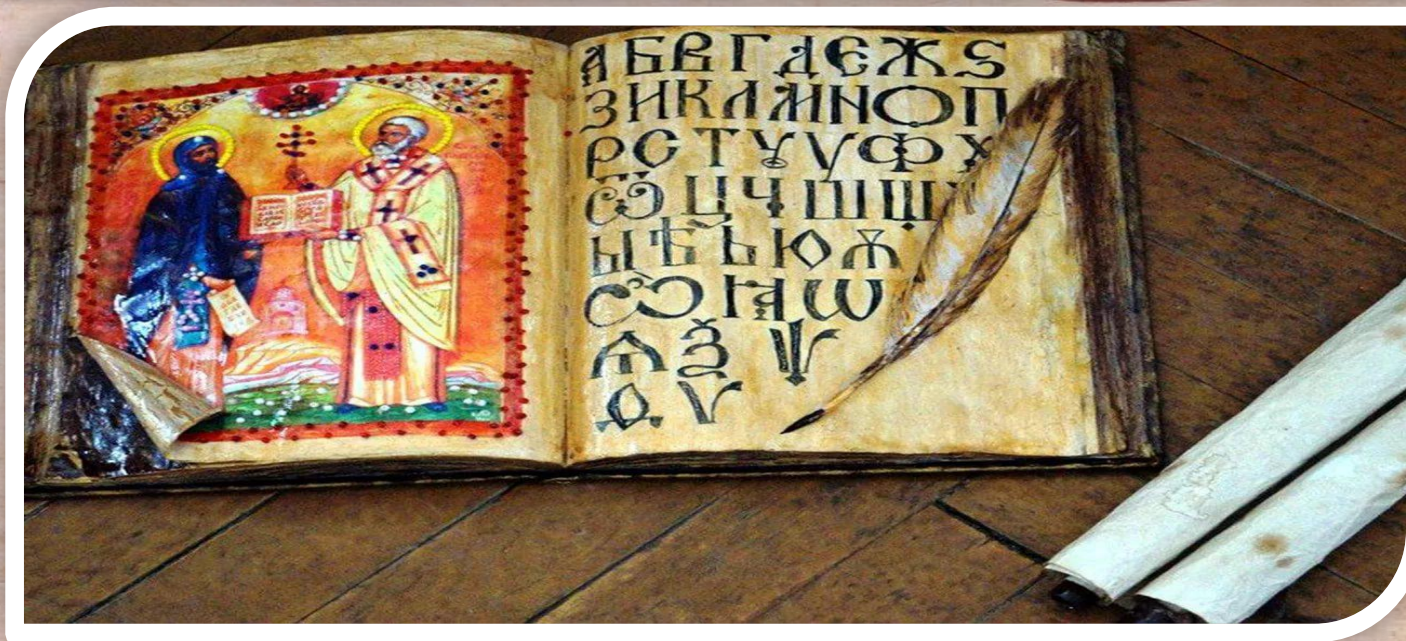 А Б В Г Д Е Ж Ѕ
З И К Л М Н О П
Р С Т Ꙋ У Ф Х
Ѿ Ц Ч Ш Щ
Ы Ѣ Ь Ю Ѫ
Ѡ Ꙗ Ѡ
Ѧ Ѯ Ѱ
Ѵ